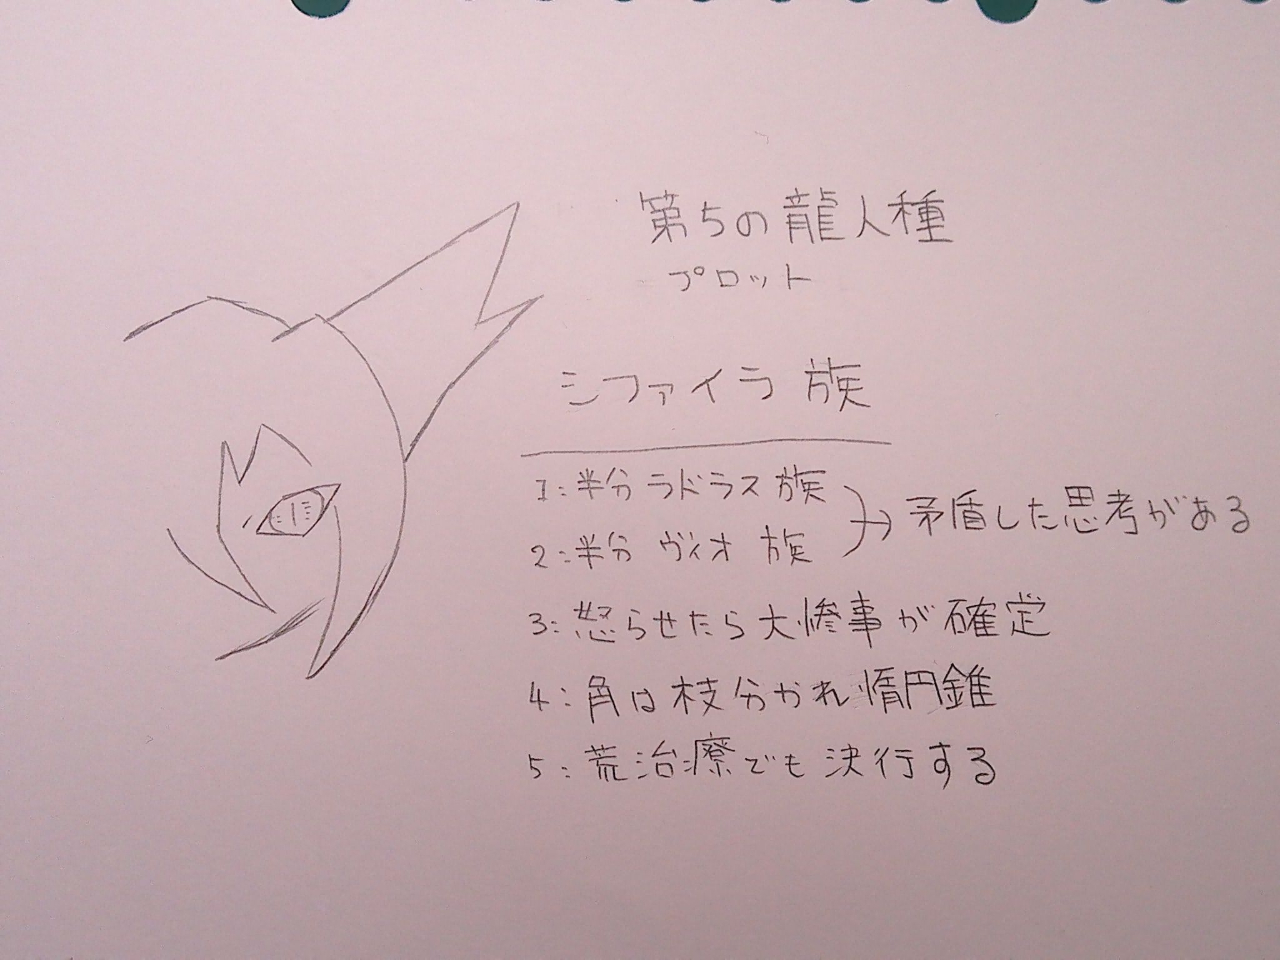 第5の龍人種
プロット
シファイラ族
1:半分ラドラス族
2:半分ヴィオ族
→矛盾した思考がある
3:怒らせたら大惨事が確定
4:角は枝分かれ惰円錐
5:荒治療でも決行する